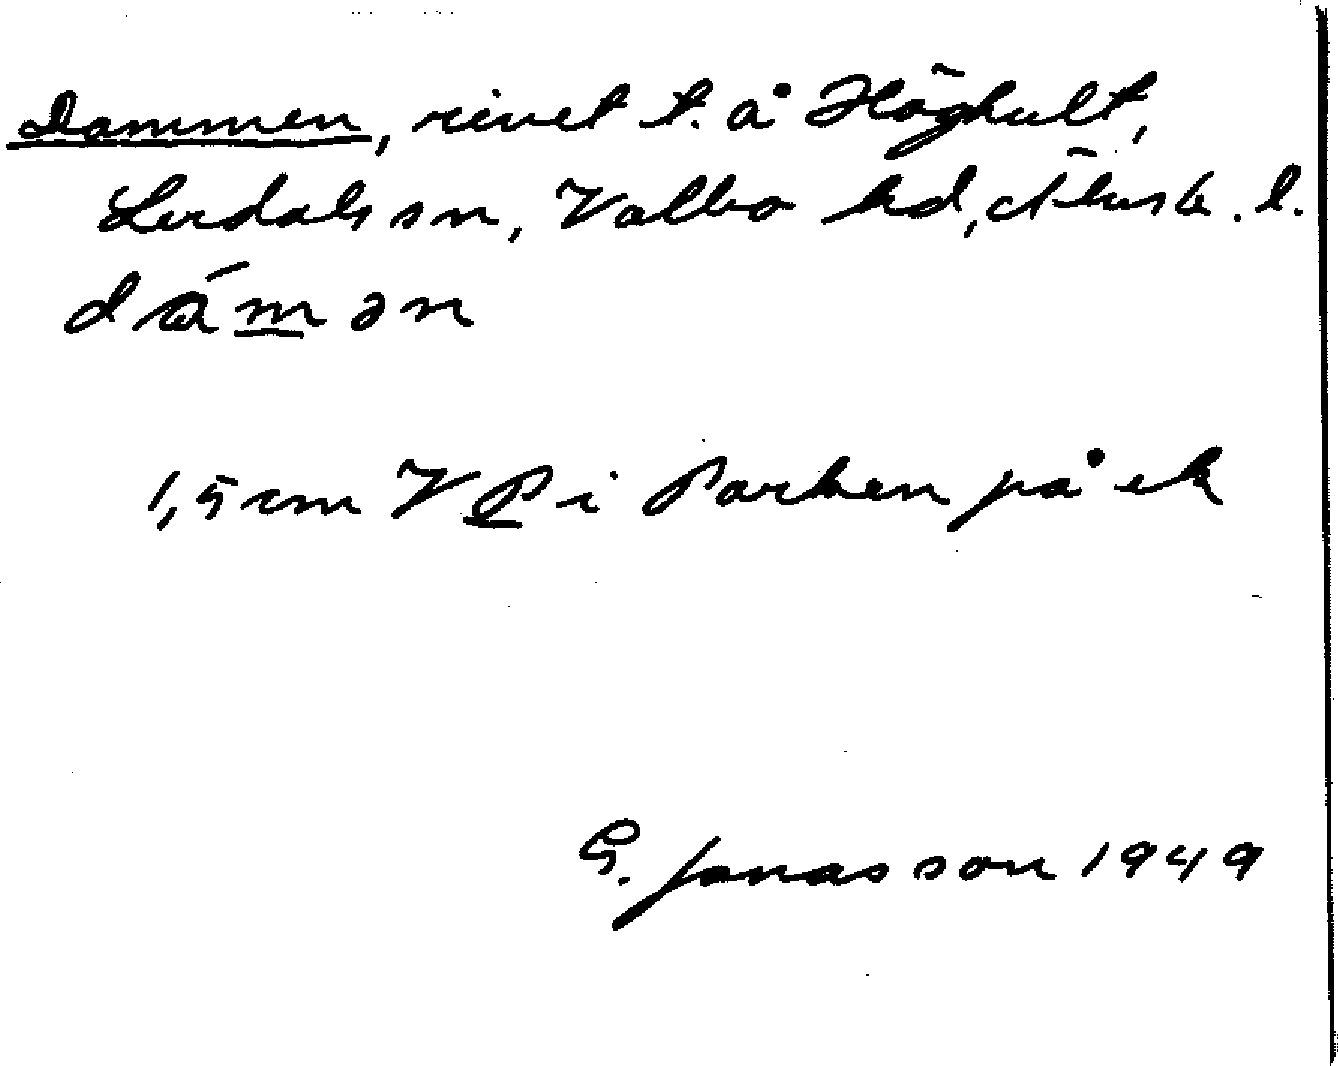 Dammen, rivet t. å Höghult,
Lerdals sn, Valbo hd, Älvsb. l.
dámən
1,5 cm V P i Parken på ek
G. Jonasson 1949